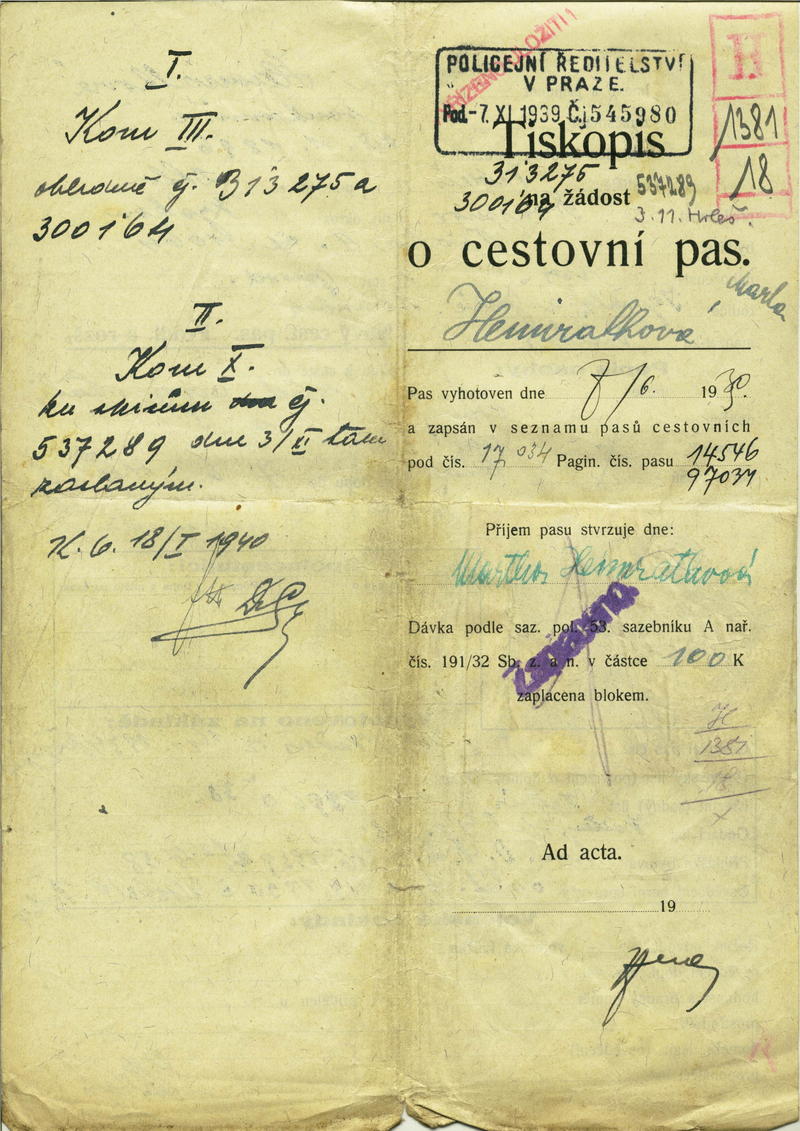 I.
Kom III.
čj. 313275a
300164
II.
Kom X.
ku spisům čj.
537289 dne 3/II tam
zaslaným.
K. 6. 18/I 1940
POLICEJNÍ ŘEDITELSTVÍ
V PRAZE.
Pod. -7. XI. 1939 Čj 545980
H
1381
18
Tiskopis
313275
300164
na žádost
537289
3. 11.
o cestovní pas.
Marta
Hemratková
Pas vyhotoven dne 7/6. 1939.
a zapsán v seznamu pasů cestovních
pod čís. 17034 Pagin. čís. pasu 14546
97031
Příjem pasu stvrzuje dne:
Martha
Zapsáno.
Dávka podle saz. pol. 53. sazebníku A nař.
čís. 191/32 Sb. z. a n. v částce 100 K
zaplacena blokem.
H
1381
18
Ad acta.
19